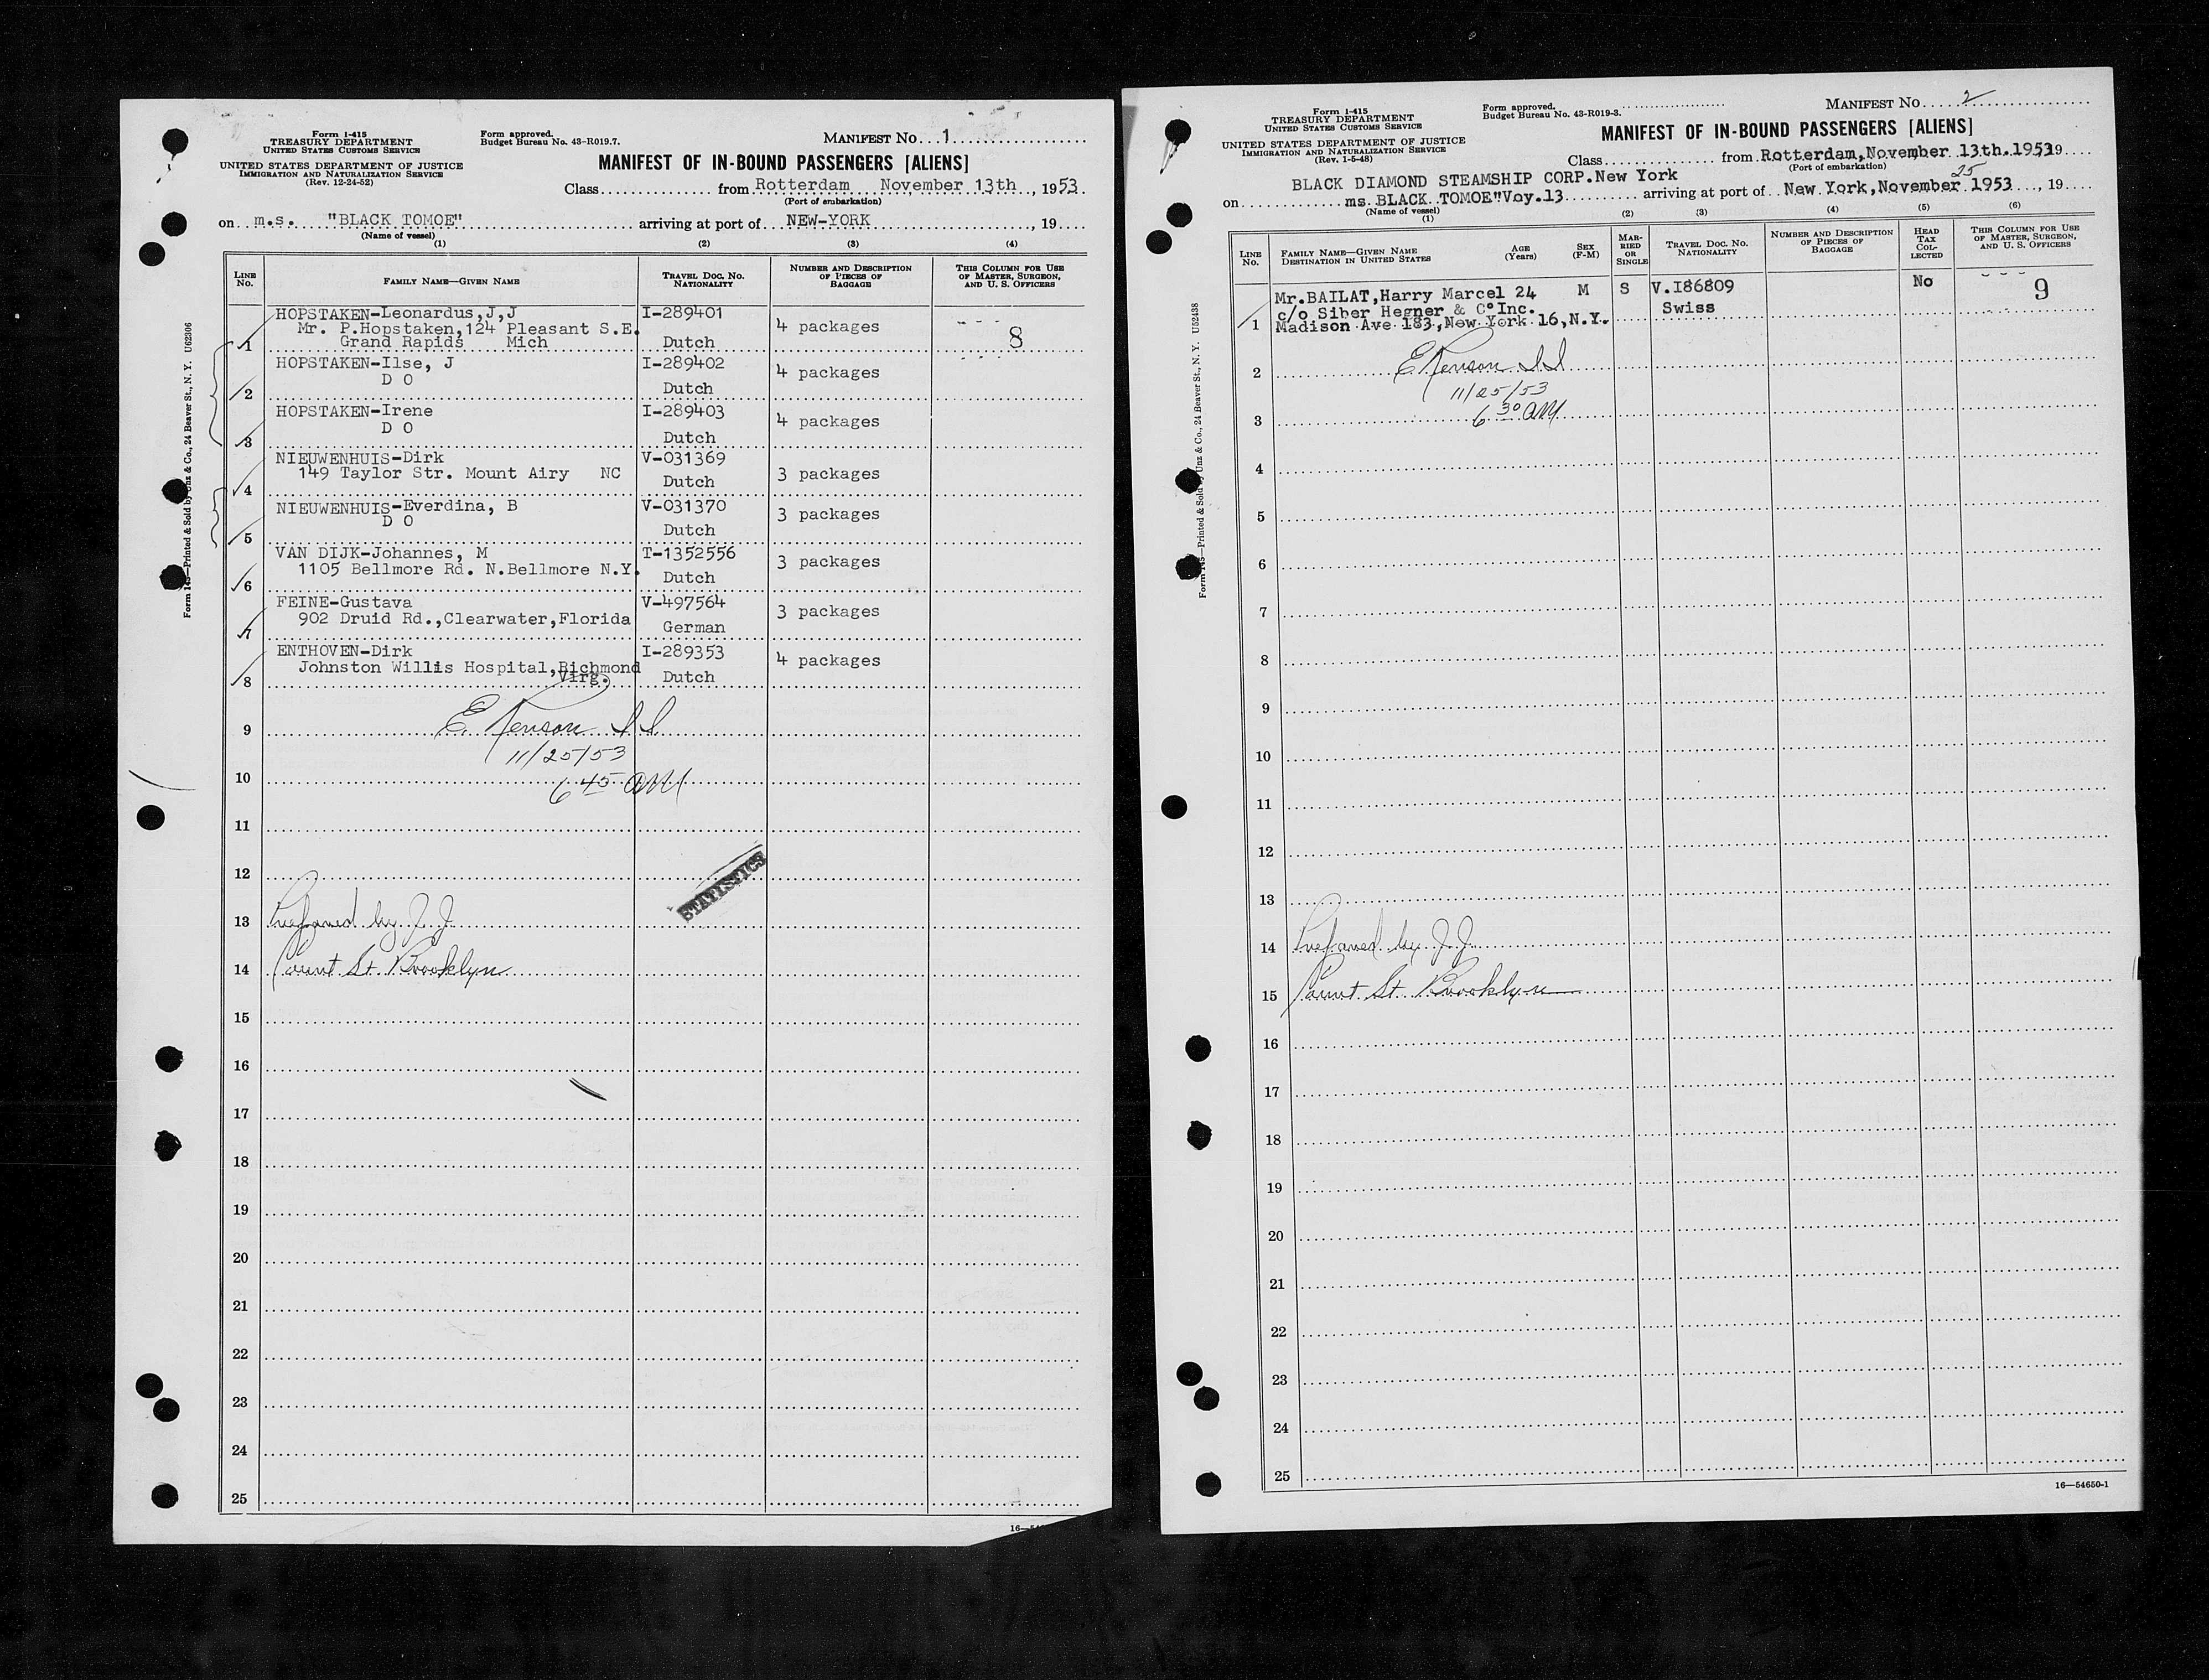 Form I-415
TREASURY DEPARTMENT
UNITED STATES CUSTOMS SERVICE
UNITED STATES DEPARTMENT OF JUSTICE
IMMIGRATION AND NATURALIZATION SERVICE
(Rev. 12-24-52)
Form approved.
Budget Bureau No. 43-R019.7.
MANIFEST No. 1
MANIFEST OF IN-BOUND PASSENGERS [ALIENS]
Class from Rotterdam November 13th, 1953.
(Port of embarkation)
on m.s. "BLACK TOMOE" arriving at port of NEW-YORK, 19
(Name of vessel)
(1) (2) (3) (4)
LINE No. FAMILY NAME—GIVEN NAME TRAVEL DOC. NO. NATIONALITY NUMBER AND DESCRIPTION OF PIECES OF BAGGAGE THIS COLUMN FOR USE OF MASTER, SURGEON, AND U. S. OFFICERS
HOPSTAKEN-Leonardus,J,J I-289401
Mr. P.Hopstaken,124 Pleasant S.E. 4 packages
1 Grand Rapids Mich Dutch 8
HOPSTAKEN-Ilse, J I-289402
D O 4 packages
2 Dutch
HOPSTAKEN-Irene I-289403
D O 4 packages
3 Dutch
NIEUWENHUIS-Dirk V-031369
149 Taylor Str. Mount Airy NC 3 packages
4 Dutch
NIEUWENHUIS-Everdina, B V-031370
D O 3 packages
5 Dutch
VAN DIJK-Johannes, M T-1352556
1105 Bellmore Rd. N.Bellmore N.Y. 3 packages
6 Dutch
FEINE-Gustava V-497564
902 Druid Rd.,Clearwater,Florida 3 packages
7 German
ENTHOVEN-Dirk I-289353
Johnston Willis Hospital,Richmond 4 packages
8 Virg. Dutch
9 E. Renson I I
11/25/53
10 6 45 AM
11
12
STATISTICS
13 by J.J.
14 Court St. Brooklyn
15
16
17
18
19
20
21
22
23
24
25
16—
Form I-415
TREASURY DEPARTMENT
UNITED STATES CUSTOMS SERVICE
UNITED STATES DEPARTMENT OF JUSTICE
IMMIGRATION AND NATURALIZATION SERVICE
(Rev. 1-5-48)
Form approved.
Budget Bureau No. 43-R019-3.
MANIFEST No. 2
MANIFEST OF IN-BOUND PASSENGERS [ALIENS]
Class from Rotterdam,November 13th.1953 19
(Port of embarkation)
BLACK DIAMOND STEAMSHIP CORP.New York
25
on ms.BLACK TOMOE"Voy.13 arriving at port of New York,November 1953, 19
(Name of vessel)
(1) (2) (3) (4) (5) (6)
LINE No. FAMILY NAME—GIVEN NAME DESTINATION IN UNITED STATES AGE (Years) SEX (F-M) MARRIED OR SINGLE TRAVEL DOC. NO. NATIONALITY NUMBER AND DESCRIPTION OF PIECES OF BAGGAGE HEAD TAX COLLECTED THIS COLUMN FOR USE OF MASTER, SURGEON, AND U. S. OFFICERS
Mr.BAILAT,Harry Marcel 24 M S V.I86809 No 9
c/o Siber Hegner & C° Inc. Swiss
1 Madison Ave 183,New York 16,N.Y.
2 E. Renson I I
11/25/53
3 6 30 AM
4
5
6
7
8
9
10
11
12
13
14 by J.J.
15 Court St. Brooklyn
16
17
18
19
20
21
22
23
24
25
16—54650-1